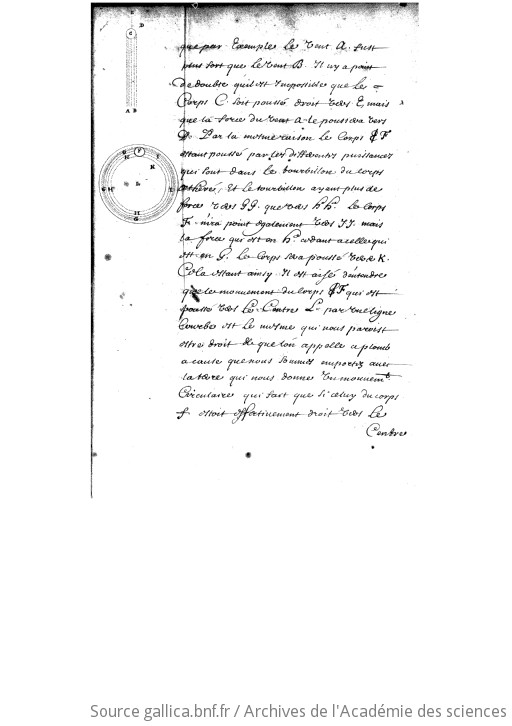 que par Exemple le vent A. fust
plus fort que le vent B. Il ny a point
de doubte quil est Impossible que le
Corps C. soit poussé droit vers E, mais
que la force du vent A le poussera vers
D. Par la mesme raison le Corps F
estant poussé par les differentes puissances
qui sont dans le tourbillon du corps
etheré, Et le tourbillon ayant plus de
force vers GG. que vers hh. le corps
F. nira point egalement vers II. mais
la force qui est en h. cedant a celle qui
est en G. le Corps sera poussé vers K.
Cela estant ainsy Il est aisé dentendre
que le mouvement du corps F qui est
poussé vers le Centre L. par une ligne
Courbe est le mesme qui nous paroist
estre droit & que lon appelle a plomb
a cause que nous sommes emportez avec
la terre qui nous donne un mouvem.t
Circulaire qui fait que si celuy du corps
f. estoit effectivement droit vers le
Centre
D
E
C
A B
G
F
I
K
H
L
G H
I
H
G
Source gallica.bnf.fr / Archives de l'Académie des sciences